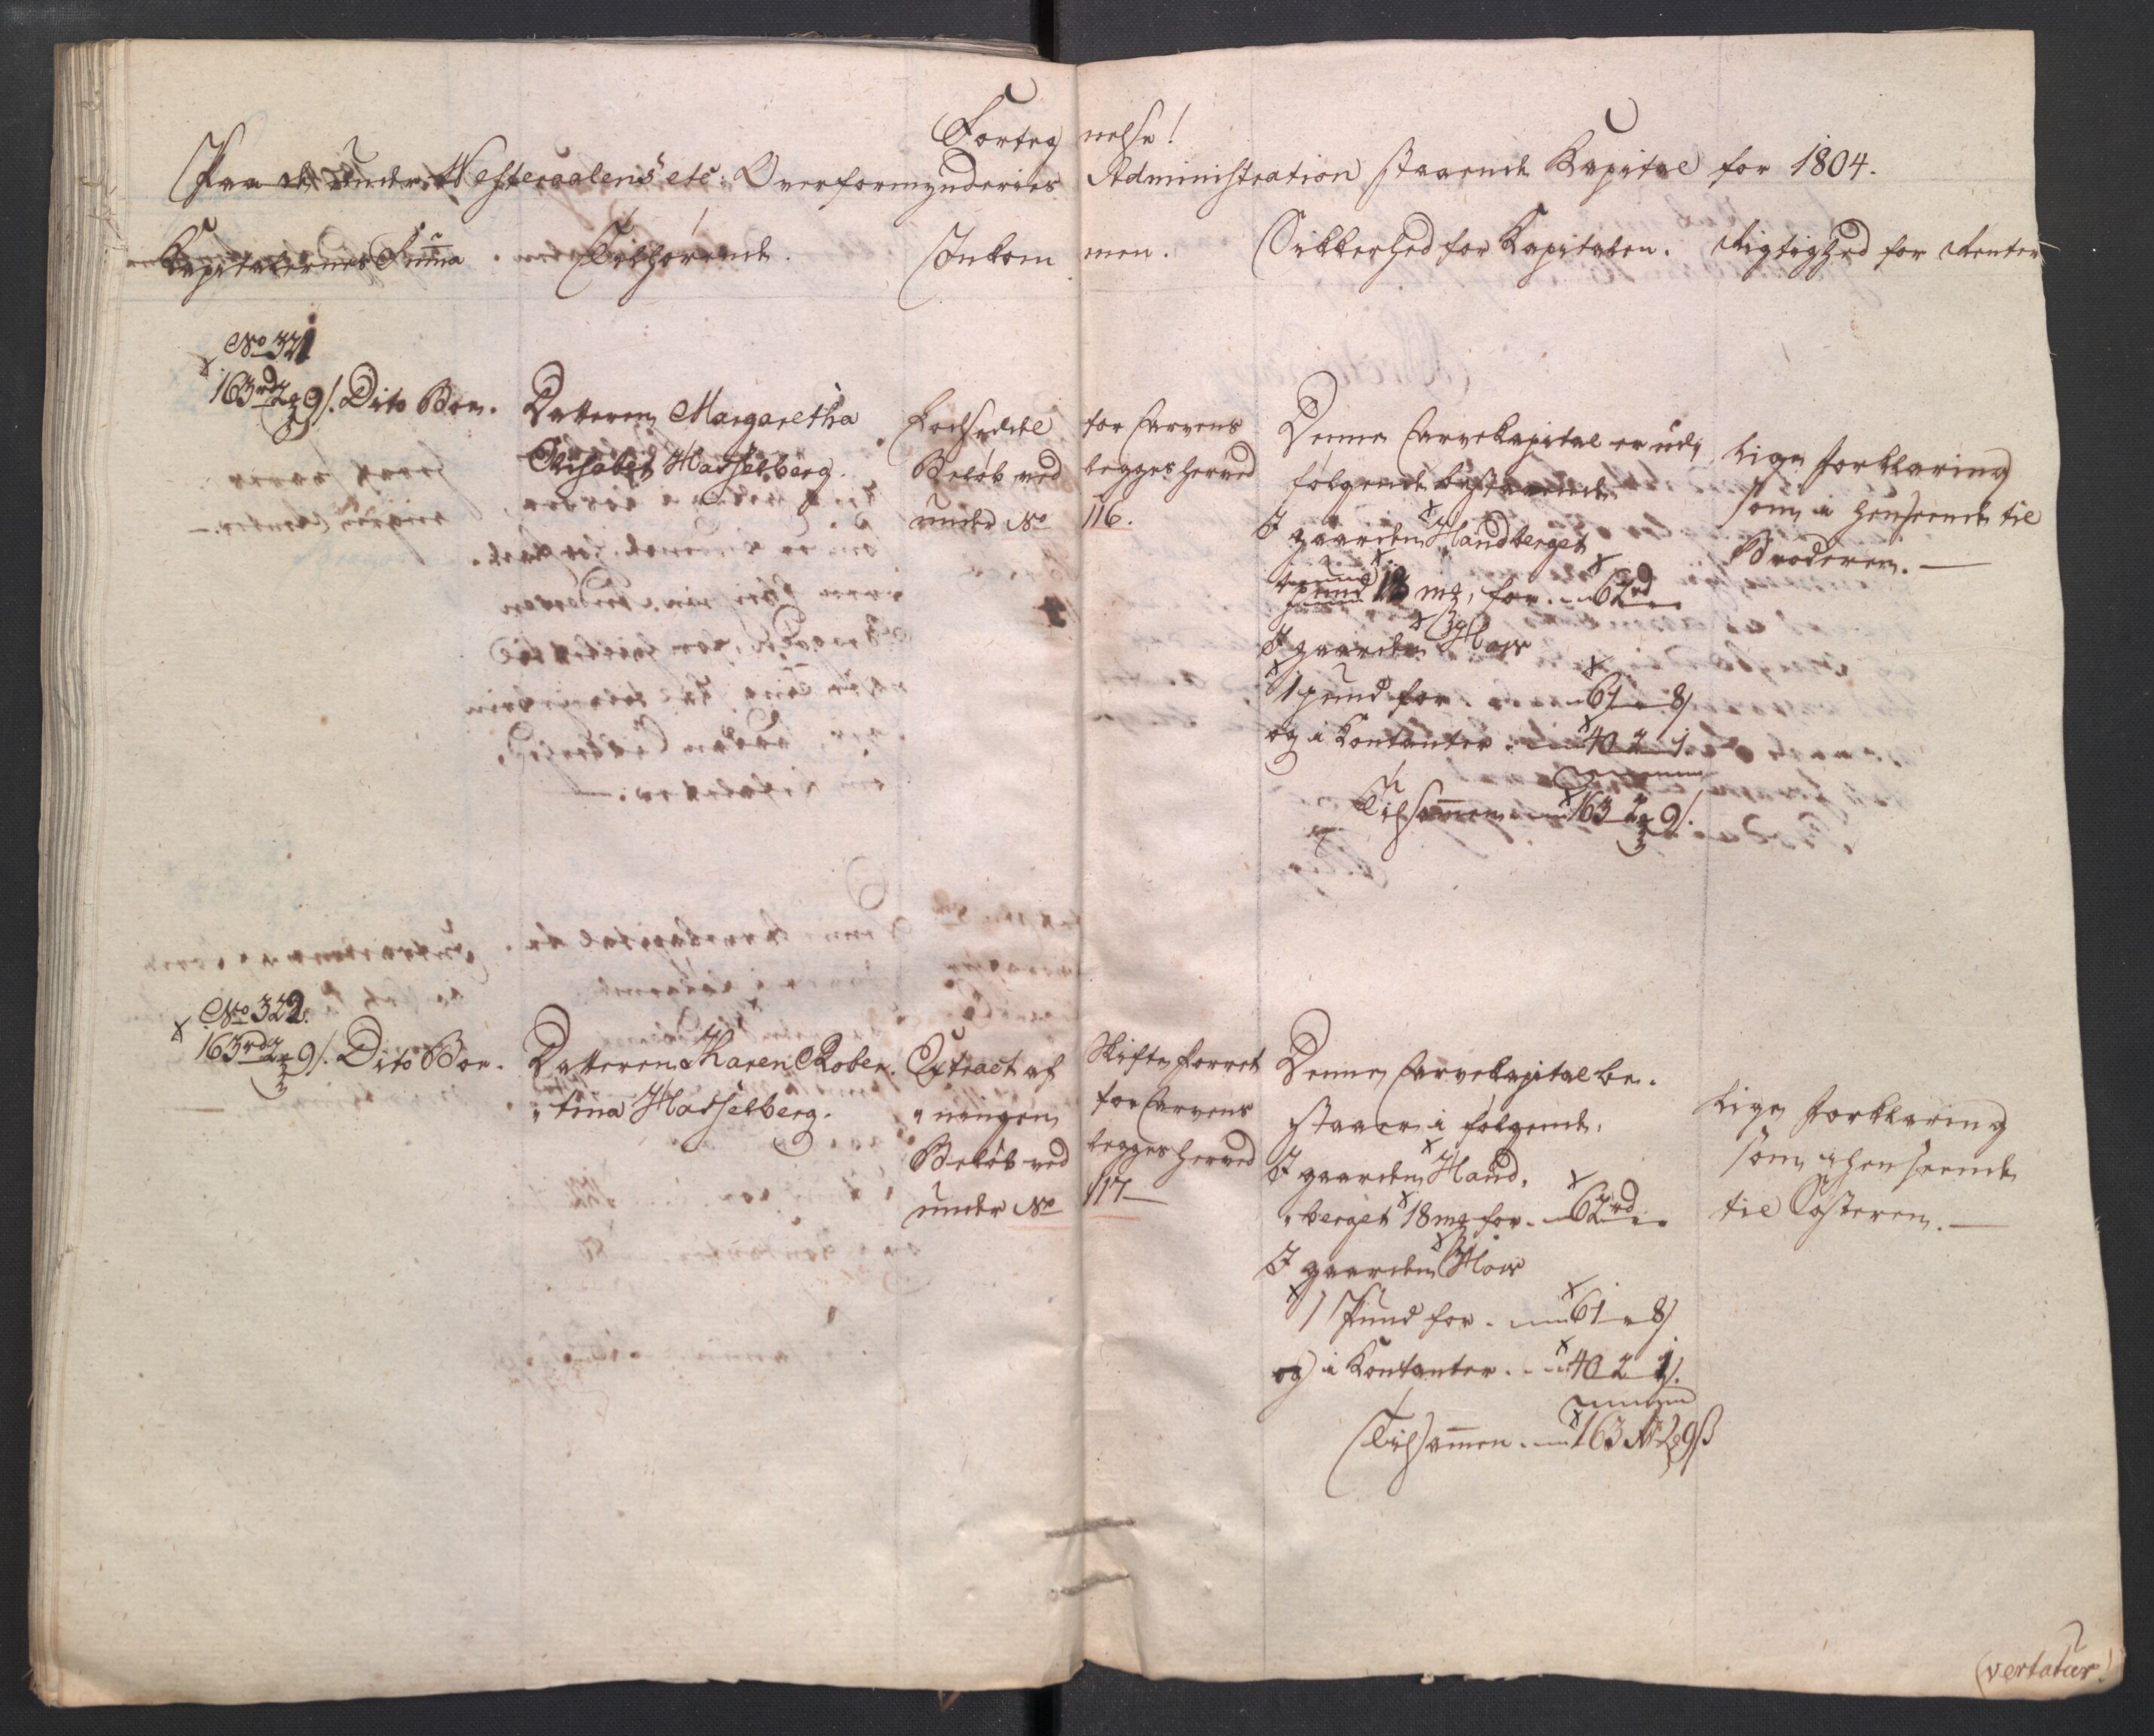 Forteg nelse!
Paa de under Westeraalens etc: Overformynderies Administration staaende Kapital for 1804.
Kapitalernes Suma Tilhørende. Inkom men. Sikkerhed for Kapitalen. Rigtighed for Renter
No 321
163rd 2 9s. Dito Boe.
Datteren Margaretha
Elisabet Hatselberg.
Lodseddel
Beløb ved
under No
for Arvens
legges herved
116.
Denne Arvekapital er udi
følgende bestaaende
I gaarden Handberget
18 mg, for 62rd
I gaarden How
1 pund for 61 8s
og i Kontanter 40 2 1.
Tilsammen 163 2 9s.
Lige forklaring
som i henseende til
Broderen.
No 322.
163rd 2 9s. Dito Boe.
Datteren Karen Rober
tina Hatselberg.
Extract af
ningen
Beløb ved
under No
Skifte forret
for Arvens
legges herved
117
Denne Arvekapital be
staaer i følgende.
I gaarden Hand,
berget 18 mg for 62rd
I gaarden How
1 Pund for 61 8s
og i Kontanter 40 2 1s.
Tilsammen 163 Rd 2 9ß
Lige forklaring
som i henseende
til Søsteren.
(vertatur)